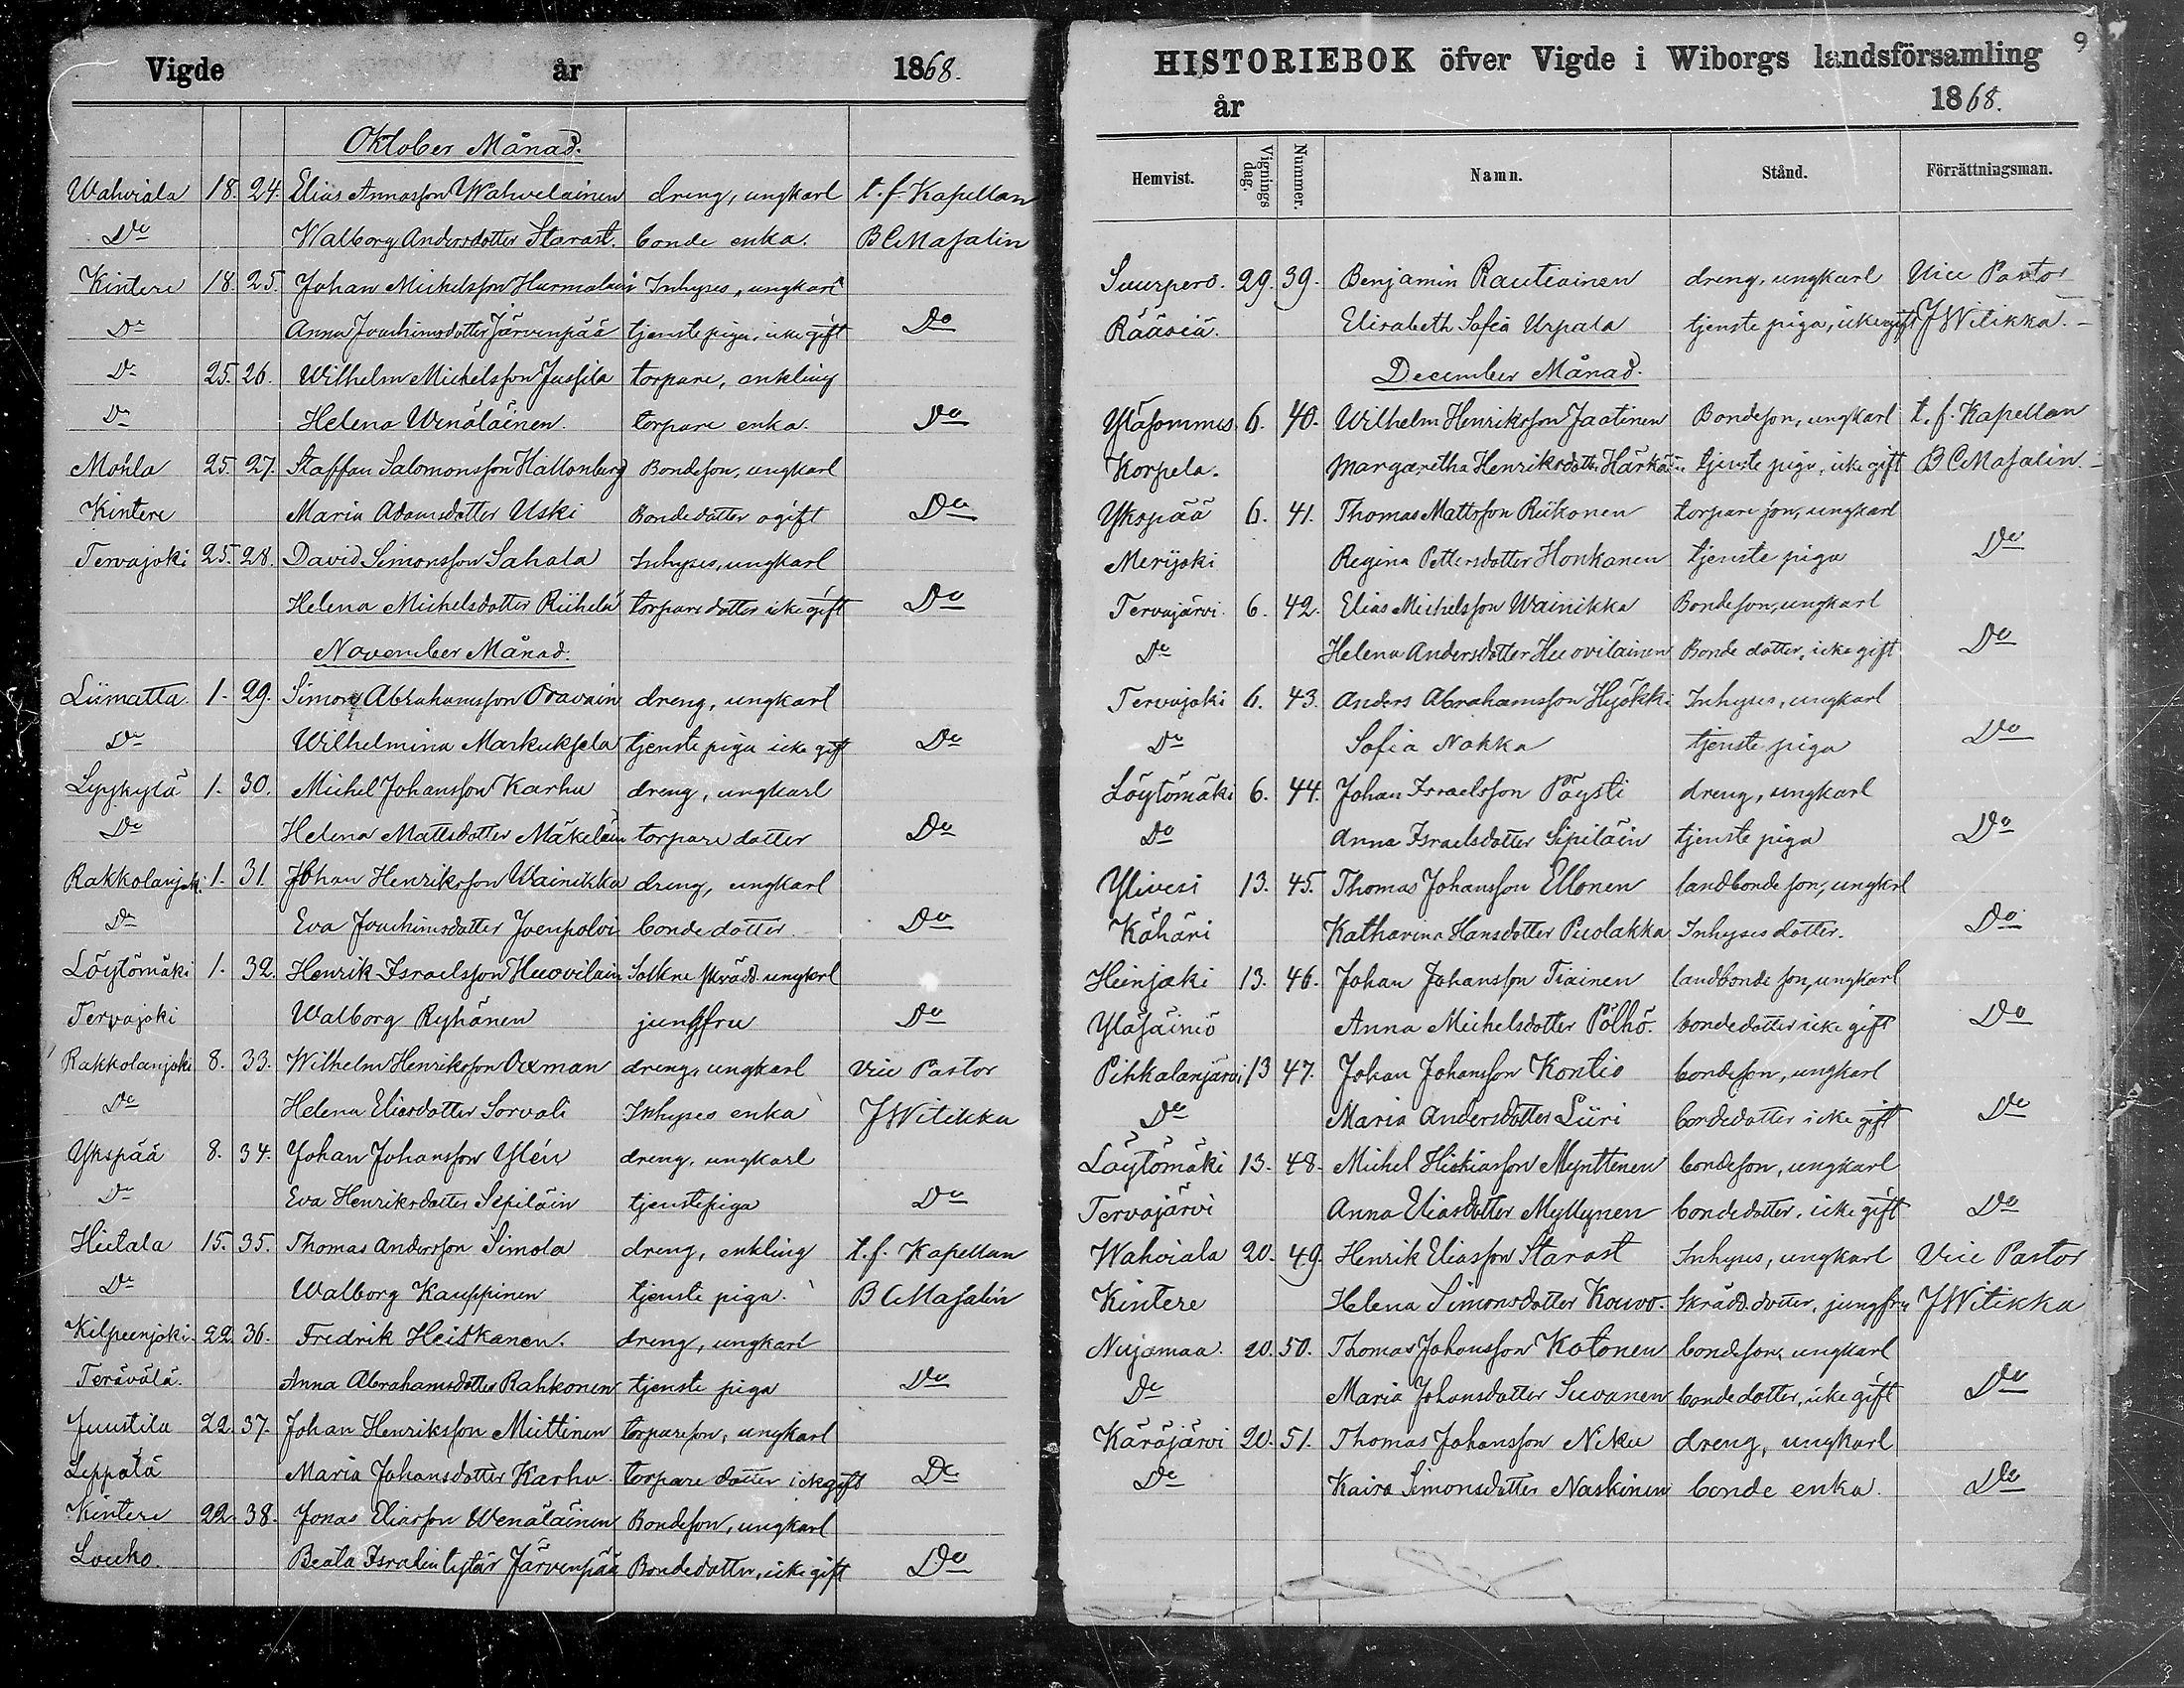 Vigde år 1868.
Oktober Månad.
Wahviala 18. 24. Elias Annasson Wahvelainen dreng, ungkarl t. f. Kapellan
Do Walborg Andersdotter Starast. bonde enka. B C Masalin
Kintere 18. 25. Johan Michelsson Hurmalain Inhyses, ungkarl
Do Anna Joachimsdotter Järvenpää tjenste piga, icke gift Do
Do 25. 26. Wilhelm Michelsson Jussila torpare, enkling
Do Helena Wenäläinen. torpare enka. Do
Mohla 25. 27. Staffan Salomonsson Hallonberg Bondeson, ungkarl
Kintere Maria Adamsdotter Uski Bondedotter ogift Do
Tervajoki 25. 28. David Simonsson Sahala Inhyses, ungkarl
Helena Michelsdotter Riihelä torpare dotter icke gift Do
November Månad.
Liimatta. 1. 29. Simon Abrahamsson Oravain dreng, ungkarl
Do Wilhelmina Markuksela tjenste piga icke gift Do
Lyykylä 1. 30. Michel Johansson Karhu dreng, ungkarl
Do Helena Mattsdotter Mäkeläin torpare dotter Do
Rakkolanjoki 1. 31. Johan Henriksson Wainikka dreng, ungkarl
Do Eva Joachimsdotter Joenpolvi bonde dotter. Do
Löytömäki 1. 32. Henrik Israelsson Huovilain Sockne skrädd ungkarl
Tervajoki Walborg Ryhänen jungfru Do
Rakkolanjoki 8. 33. Wilhelm Henriksson Oxman dreng, ungkarl Vice Pastor
Do Helena Eliasdotter Sorvali Inhyses enka J Witikka
Ykspää 8. 34. Johan Johansson Ylén dreng, ungkarl
Do Eva Henriksdotter Sepiläin tjenstepiga Do
Hietala 15. 35. Thomas Andersson Simola dreng, enkling t. f. Kapellan
Do Walborg Kauppinen tjenste piga. B C Masalin
Kilpeenjoki 22. 36. Fredrik Heiskanen. dreng, ungkarl
Terävälä. Anna Abrahamsdotter Rahkonen tjenste piga Do
Juustila 22. 37. Johan Henriksson Miettinen torpareson, ungkarl
Leppälä Maria Johansdotter Karhu torpare dotter ickgift Do
Kintere 22. 38. Jonas Eliasson Wenäläinen Bondeson, ungkarl
Louko. Beata Israelin tytär Järvenpää Bondedotter, icke gift Do
9
HISTORIEBOK öfver Vigde i Wiborgs landsförsamling
år 1868.
Hemvist. Vignings dag. Nummer. Namn. Stånd. Förrättningsman.
Suurpero. 29. 39. Benjamin Rautiainen dreng, ungkarl Vice Pastor
Rääsiä. Elisabeth Sofia Urpala tjenste piga, icke gift J Witikka.
December Månad.
Yläsommes 6. 40. Wilhelm Henriksson Jaatinen Bondeson, ungkarl t. f. Kapellan
Korpela. Margaretha Henriksdotter Härkäin tjenste piga, icke gift B C Masalin.
Ykspää 6. 41. Thomas Mattsson Riikonen torpare son, ungkarl
Merijoki Regina Pettersdotter Honkanen tjenste piga Do
Tervajärvi. 6. 42. Elias Michelsson Wainikka Bondeson, ungkarl
Do Helena Andersdotter Huovilainen Bonde dotter, icke gift Do
Tervajoki 6. 43. Anders Abrahamsson Hyökki Inhyses, ungkarl
Do Sofia Nokka tjenste piga Do
Löytömäki 6. 44. Johan Israelsson Pöysti dreng, ungkarl
Do Anna Israelsdotter Sipiläin tjenste piga Do
Ylivesi 13. 45. Thomas Johansson Ellonen landbonde son, ungkrl
Kähäri Katharina Hansdotter Puolakka Inhyses dotter. Do
Heinjoki 13. 46. Johan Johansson Tiainen landbonde son, ungkarl
Yläsäiniö Anna Michelsdotter Pölhö. bondedotter icke gift Do
Pihkalanjärvi 13 47. Johan Johansson Kontio bondeson, ungkarl
Do Maria Andersdotter Liiri bondedotter icke gift Do
Löytömäki 13. 48. Michel Hiskiasson Mynttinen bondeson, ungkarl
Tervajärvi Anna Eliasdotter Myllynen bondedotter, icke gift Do
Wahviala 20. 49. Henrik Eliasson Starast Inhyses, ungkarl Vice Pastor
Kintere Helena Simonsdotter Kouvo. Skrädd. dotter, jungfru J Witikka
Nujamaa. 20. 50. Thomas Johansson Kotonen bondeson, ungkarl
Do Maria Johansdotter Suvanen bonde dotter, icke gift Do
Käräjärvi 20. 51. Thomas Johansson Niku dreng, ungkarl
Do Kaisa Simonsdotter Naskinen bonde enka. Do